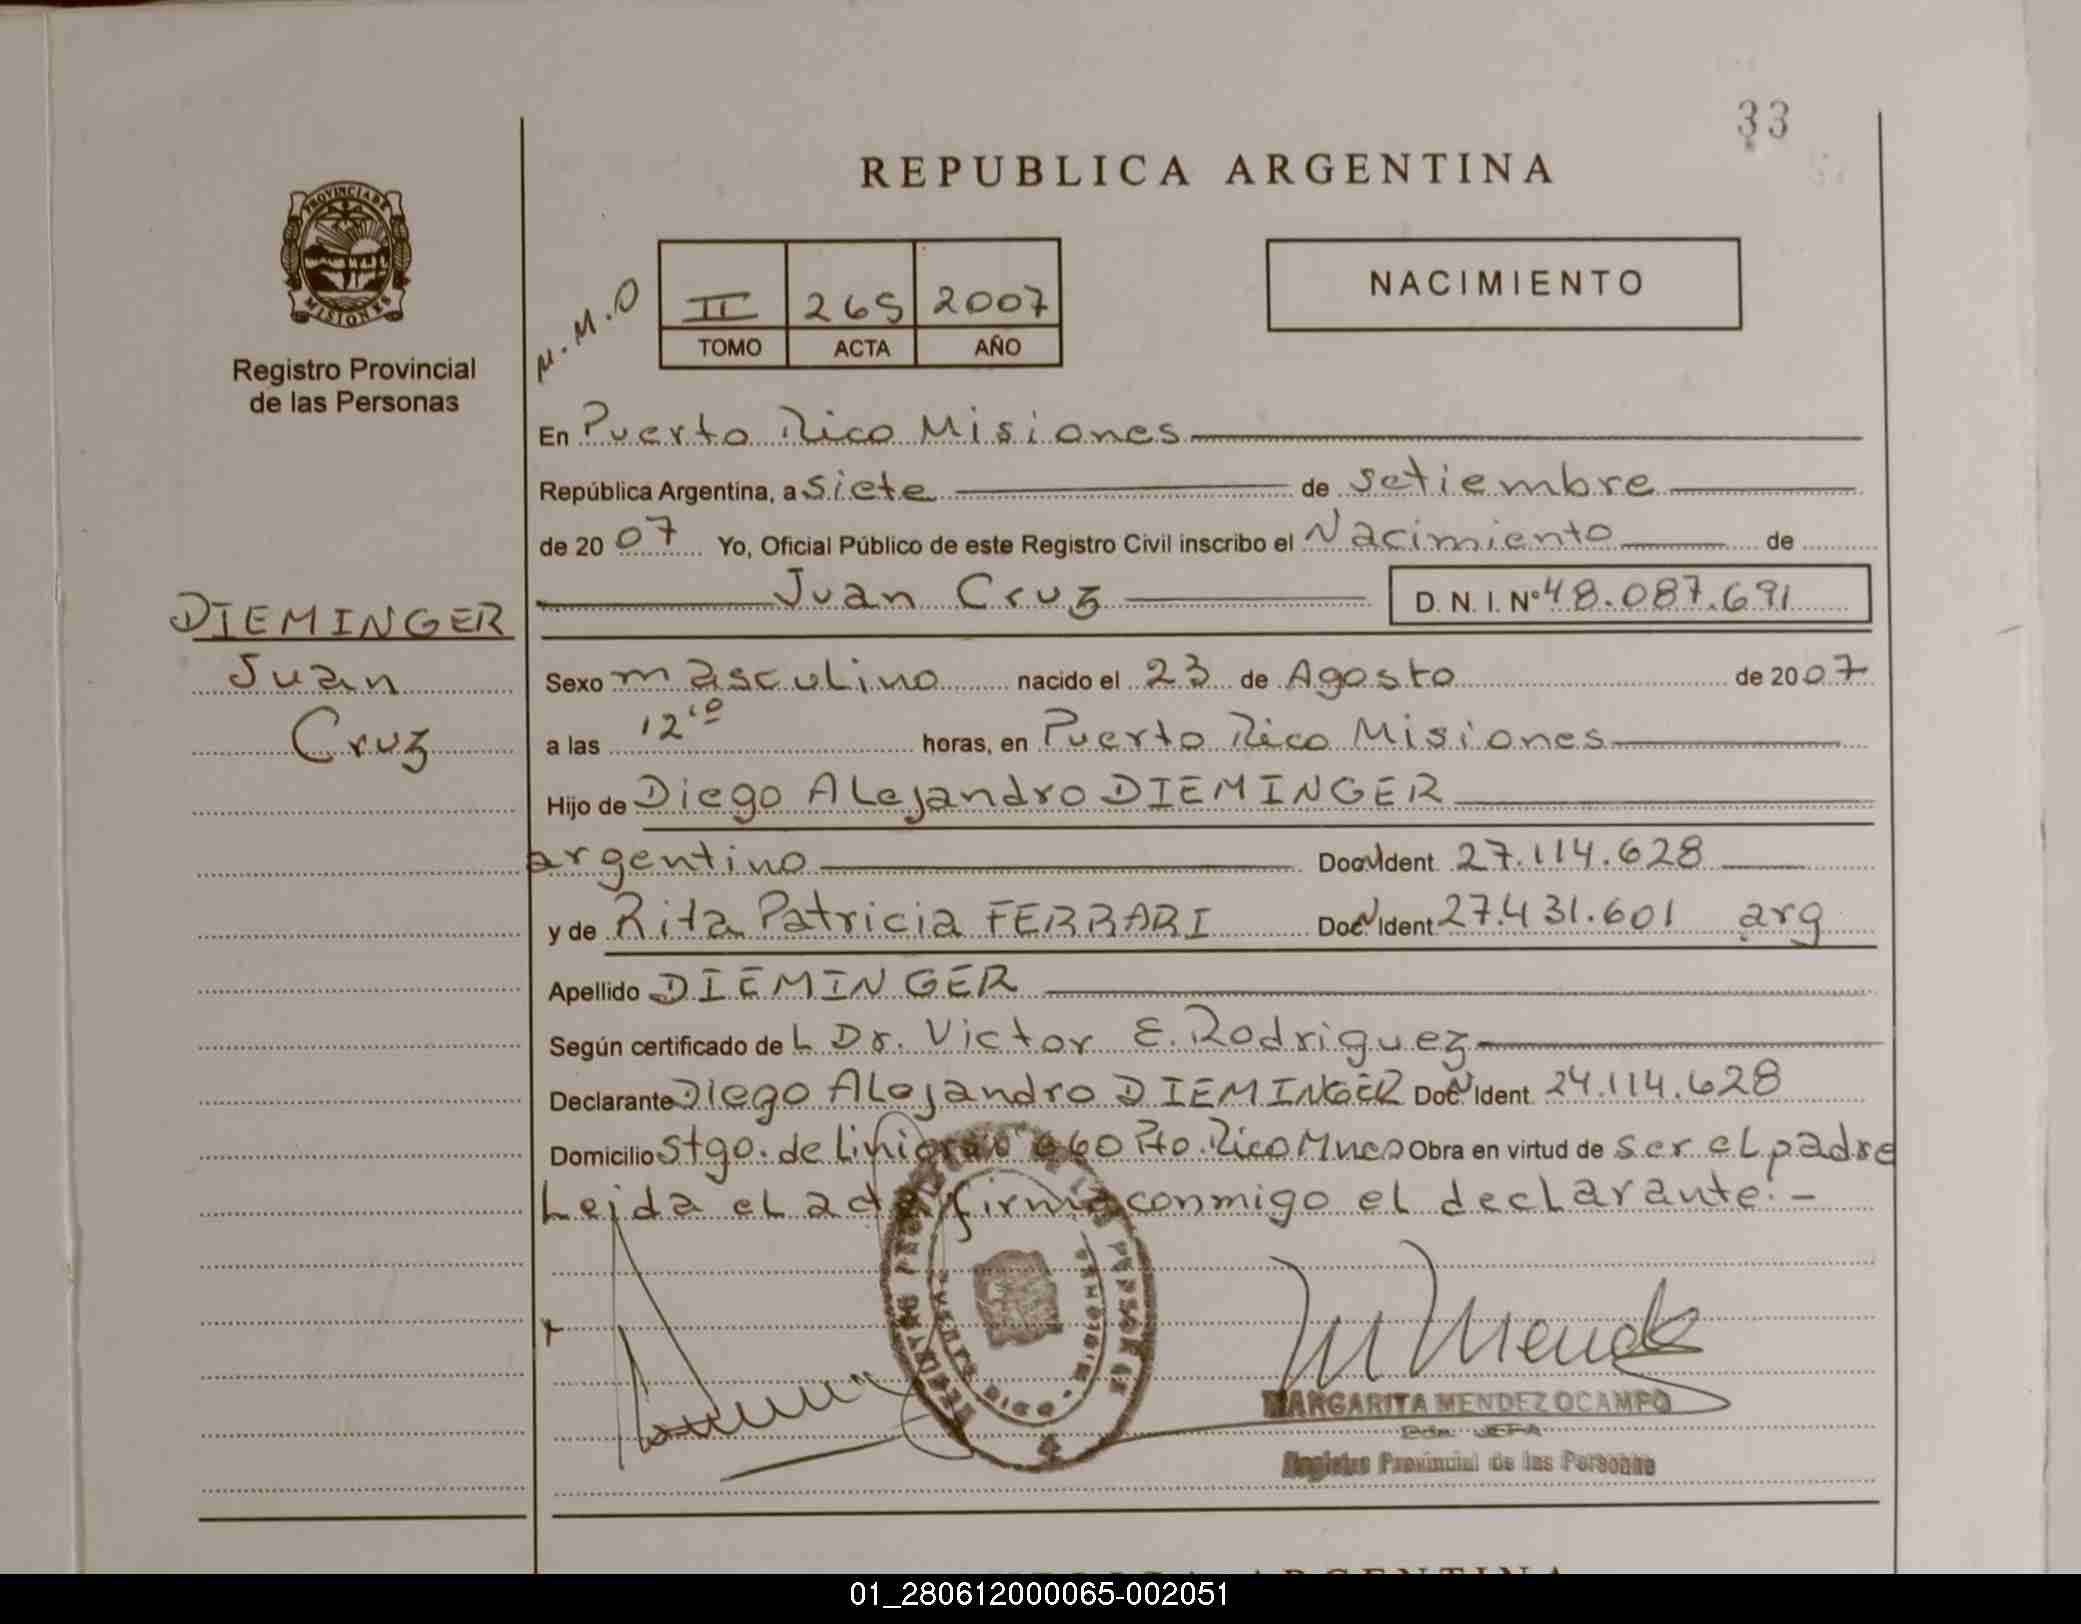 33
REPUBLICA ARGENTINA
PROVINCIA DE
MISIONES
Registro Provincial
de las Personas
M.M.O
II 265 2007
TOMO ACTA AÑO
NACIMIENTO
En Puerto Rico Misiones
República Argentina, a siete de setiembre
de 2007 Yo, Oficial Público de este Registro Civil inscribo el Nacimiento de
Juan Cruz D.N.I. Nº 48.087.691
DIEMINGER
Juan
Cruz
Sexo masculino nacido el 23 de Agosto de 2007
a las 12'º horas, en Puerto Rico Misiones
Hijo de Diego Alejandro DIEMINGER
argentino Doc. Ident. 27.114.628
y de Rita Patricia FERRARI Doc. Ident. 27.431.601 arg
Apellido DIEMINGER
Según certificado de L Dr. Victor E. Rodriguez
Declarante Diego Alejandro DIEMINGER Doc. Ident. 24.114.628
Domicilio Stgo. de Liniers 660 Pto. Rico Mnes Obra en virtud de ser el padre
Leida el acta firma conmigo el declarante.-
M Mendez
MARGARITA MENDEZ OCAMPO
JEFA
Registro Provincial de las Personas
01_280612000065-002051